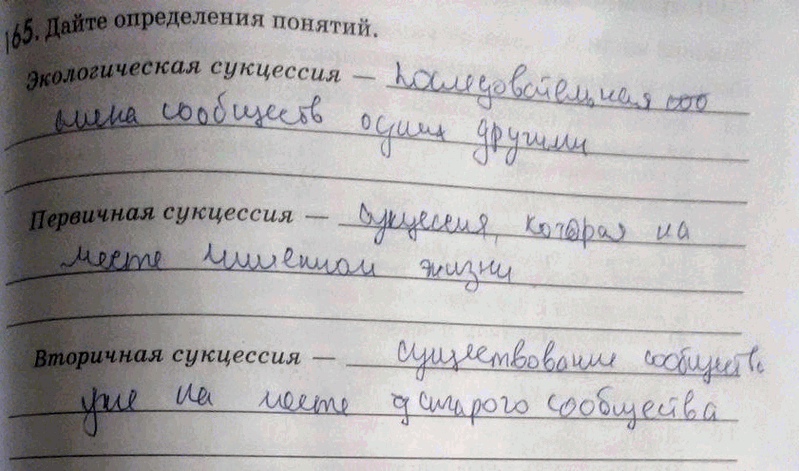 165. Дайте определения понятий.
Экологическая сукцессия — последовательная соо
смена сообществ одних другими
Первичная сукцессия — сукцессия, которая на
месте лишенном жизни
Вторичная сукцессия — существование сообществ
уже на месте старого сообщества